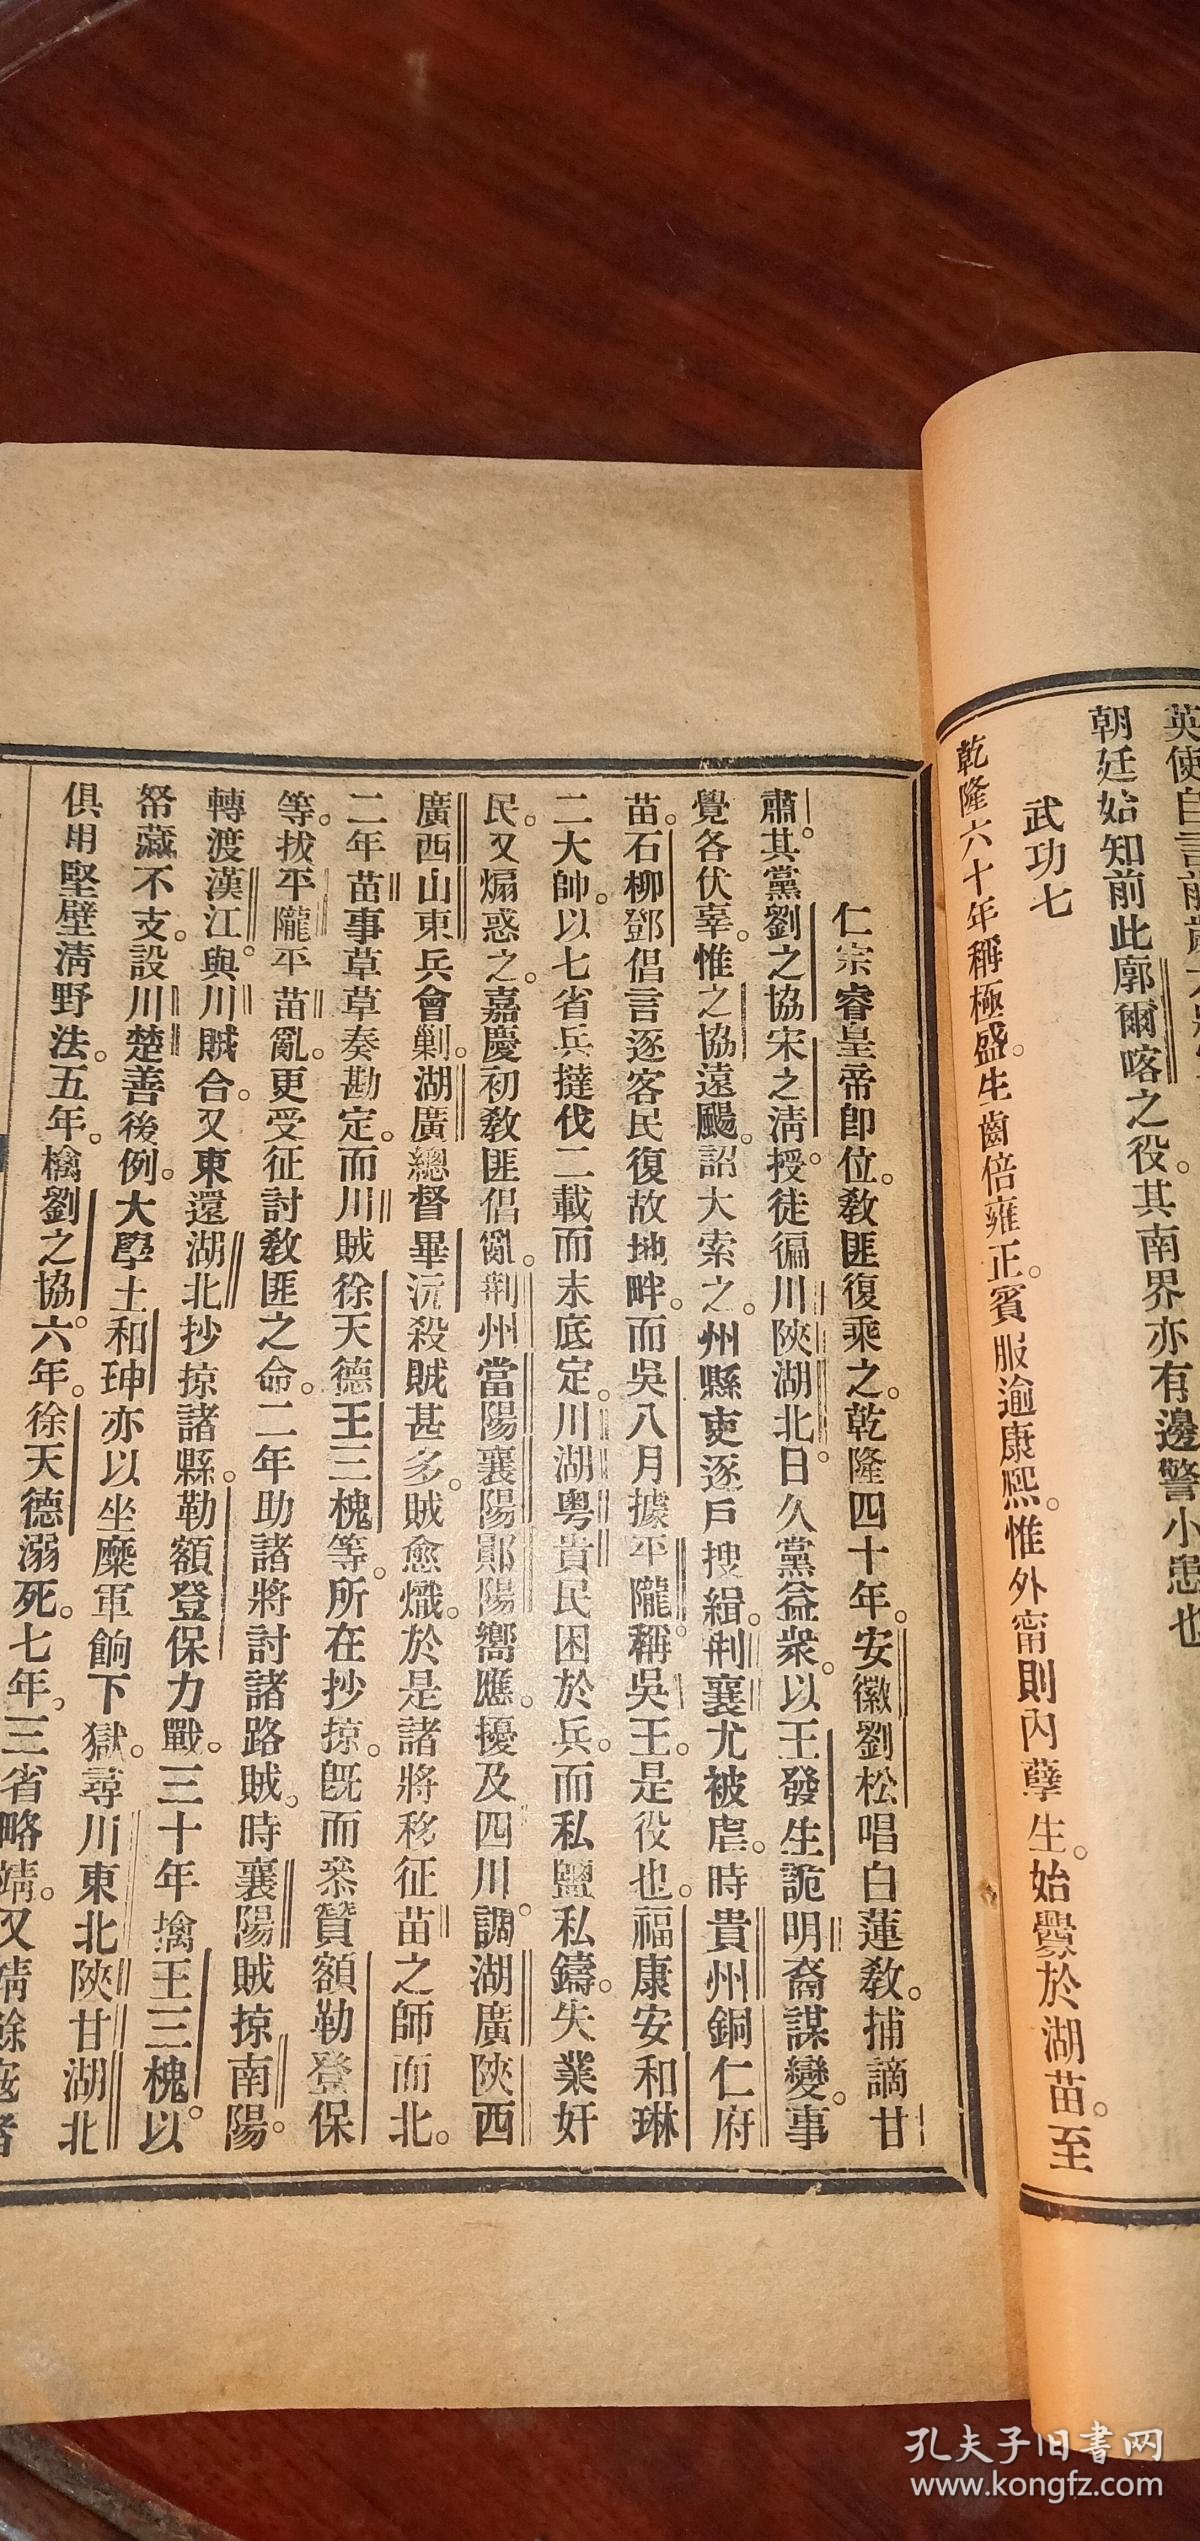 朝廷始知前此廓爾喀之役。其南界亦有邊警小患也
武功七
乾隆六十年稱極盛。生齒倍雍正。賓服逾康熙。惟外甯則內孽生。始釁於湖苗。至
仁宗睿皇帝卽位。敎匪復乘之。乾隆四十年。安徽劉松唱白蓮敎。捕謫甘
肅。其黨劉之協宋之淸。授徒徧川陝湖北。日久黨益衆。以王發生詭明裔謀變。事
覺各伏辜。惟之協遠颺。詔大索之。州縣吏逐戶搜緝。荆襄尤被虐。時貴州銅仁府
苗。石柳鄧倡言逐客民復故地畔。而吳八月據平隴。稱吳王。是役也。福康安和琳
二大帥。以七省兵撻伐二載而未底定。川湖粤貴民困於兵。而私鹽私鑄。失業奸
民。又煽惑之。嘉慶初敎匪倡亂。荆州當陽襄陽鄖陽嚮應。擾及四川。調湖廣陝西
廣西山東兵會剿。湖廣總督畢沅殺賊甚多。賊愈熾。於是諸將移征苗之師而北。
二年苗事草草奏勘定。而川賊徐天德王三槐等。所在抄掠。旣而叅贊額勒登保
等。拔平隴平苗亂。更受征討敎匪之命。二年助諸將討諸路賊。時襄陽賊掠南陽。
轉渡漢江。與川賊合。又東還湖北抄掠諸縣。勒額登保力戰。三十年擒王三槐。以
帑藏不支。設川楚善後例。大學士和珅亦以坐糜軍餉下獄。尋川東北陝甘湖北
俱用堅壁淸野法。五年。檎劉之協。六年。徐天德溺死。七年。三省略靖。又靖餘寇者
孔夫子旧书网
www.kongfz.com